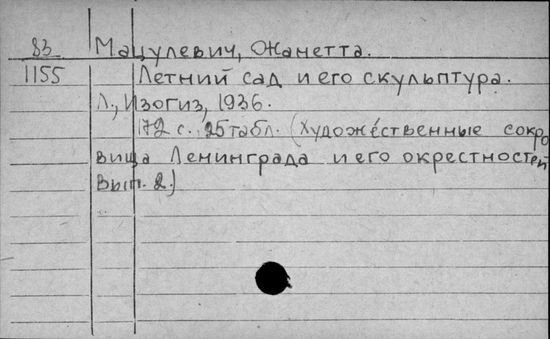 83 Мацулевич, Жанетта.
1155 Летний сад и его скульптура.
Л., Изогиз, 1936.
172 с., 25 табл. (Художественные сокро
вища Ленинграда и его окрестностей
Вып. 2.)